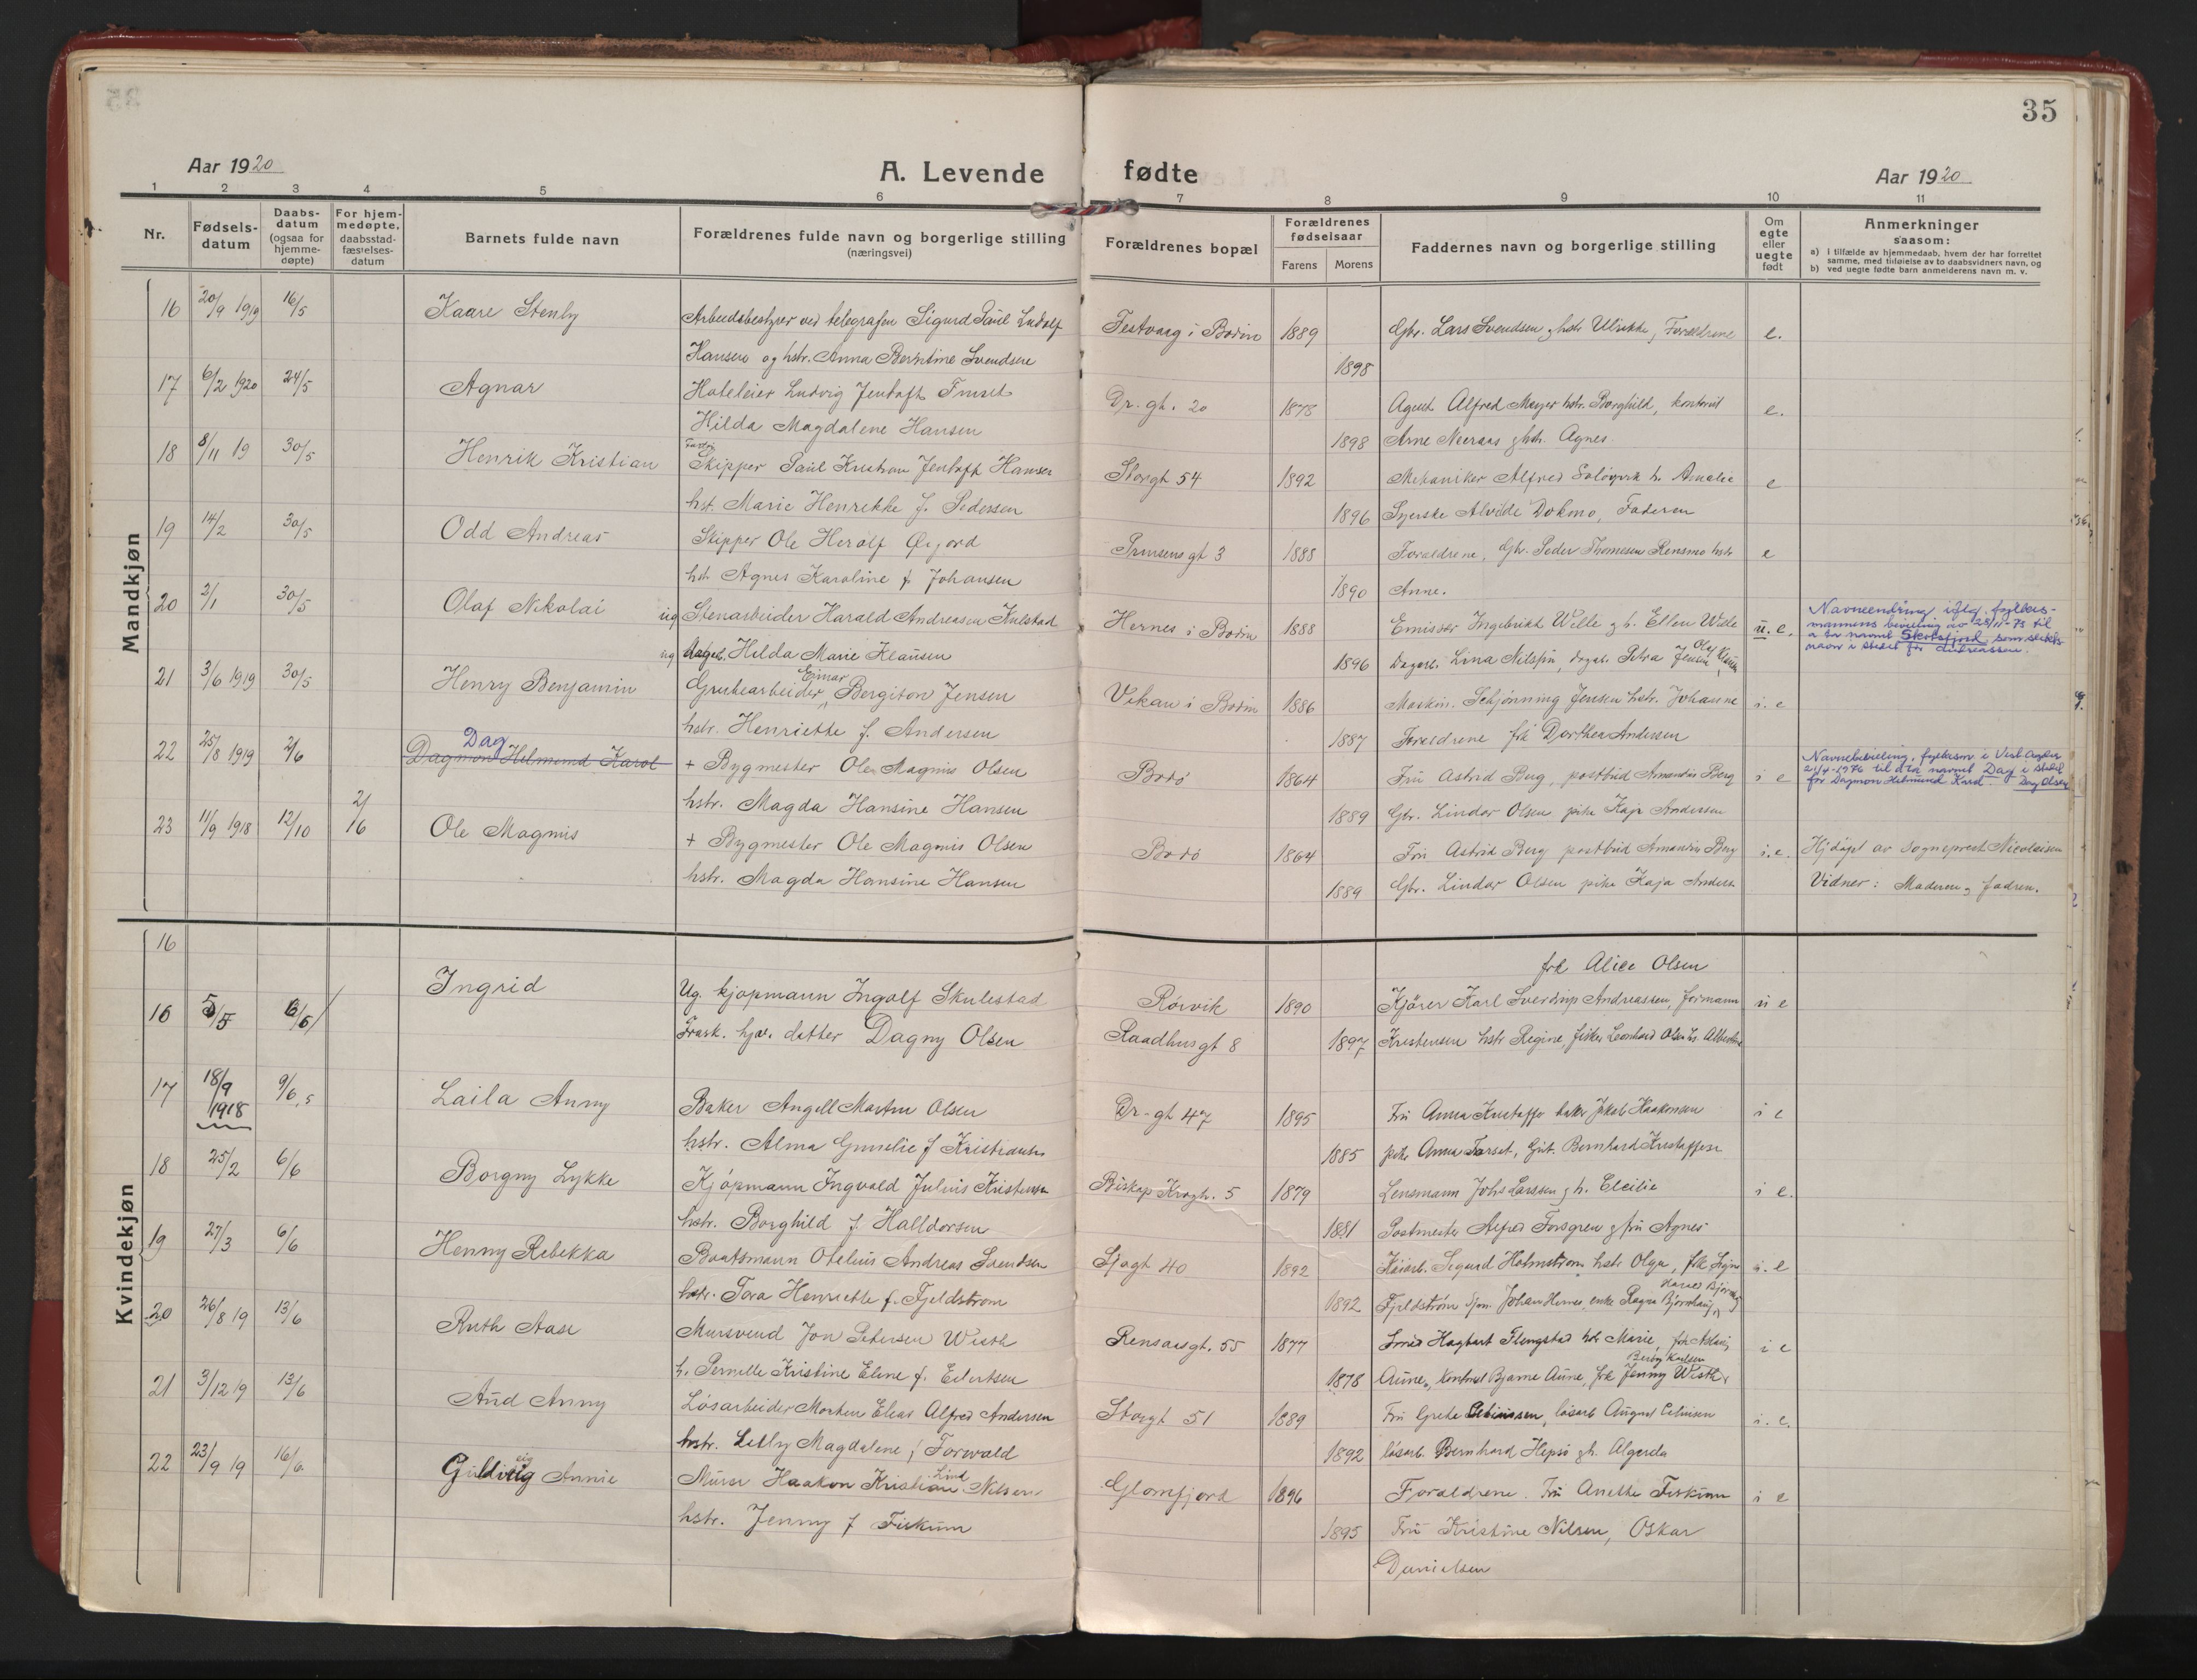 35
Aar 1920
A. Levende fødte
Aar 1920
1 2 3 4 5 6 7 8 9 10 11
Nr.
Fødselsdatum
Daabsdatum (ogsaa for hjemmedøpte)
For hjemmedøpte, daabsstadfæstelsesdatum
Barnets fulde navn
Forældrenes fulde navn og borgerlige stilling
(næringsvei)
Forældrenes bopæl
Forældrenes fødselsaar
Farens Morens
Faddernes navn og borgerlige stilling
Om egte eller uegte født
Anmerkninger
saasom:
a) i tilfælde av hjemmedaab, hvem der har forrettet samme, med tilføielse av to daabsvidners navn, og
b) ved uegte fødte barn anmelderens navn m. v.
Mandkjøn
16 20/9 1919 16/5 Kaare Stenby Arbeidsbestyrer ved telegrafen Sigurd Paul Ludolf Festvaag i Bodin 1889 Gbr. Lars Svendsen g hstr Ulrikke, Forældrene e.
Hansen og hstr. Anna Berntine Svendsen 1898
17 6/2 1920 24/5 Agnar Hoteleier Ludvig Jentoft Dr. gt. 20 1878 Agent Alfred Meyer hstr. Borghild, kontorist e.
Hilda Magdalene Hansen 1898 Arne g hstr. Agnes.
18 8/11 19 30/5 Henrik Kristian Skipper Paul Kristian Jentoft Hansen Storgt 54 1892 Mekaniker Alfred h. Amalie e
hst. Marie Henrikke f. Pedersen 1896 Syerske Alvilde Faderen
19 14/2 30/5 Odd Andreas Skipper Ole Herolf Prinsensgt 3 1888 Forældrene, Gbr. Peder Thomesen Rensmo hstr e
hst Agnes Karoline f. Johansen 1890 Anne.
20 2/1 30/5 Olaf Nikolai ug Stenarbeider Harald Andreasen Kulstad Hernes i Bodin 1888 Emissær Ingebrikt Wille g h. Ellen Wille u. e.
ug Hilda Marie Klausen 1896 Dagarb. Lina Nilsen, dagarb. Petra Jensen, Olaf Klausen
Navneendring iflg. fylkesmannens bevilling av 28/11-73 til å ta navnet Skotsfjord som slektsnavn i stedet for Andreassen.
21 3/6 1919 30/5 Henry Benjamin Grubearbeider Einar Bergiton Jensen Vekan i Bodin 1886 Maskin. Schjønning Jensen hstr. Johanne i. e
hstr. Henriette f. Andersen 1887 Forældrene frk Dorthea Andersen
22 25/8 1919 2/6 Dagmon Helmund Karol Dag + Bygmester Ole Magnus Olsen Bodø 1864 Fru Astrid Berg, postbud Amandus Berg i e
hstr. Magda Hansine Hansen 1889 Gbr. Lindor Olsen pike Kaja Andersen
Navnebevilling, fylkesm. i Vest-Agder 21/4-1976 til å ta navnet Dag i stedet for Dagmon Helmund Karol. Dag Olsen
23 11/9 1918 12/10 2/16 Ole Magnus + Bygmester Ole Magnus Olsen Bodø 1864 Fru Astrid Berg postbud Amandus Berg i. e. Hjdøpt av Sogneprest Nicolaisen
hstr. Magda Hansine Hansen 1889 Gbr. Lindor Olsen pike Kaja Anders Vidner: Moderen g fadren.
Kvindekjøn
16
frk Alice Olsen
16 5/5 6/6 Ingrid Ug. kjøpmann Ingolf Skulestad Rørvik 1890 Kjører Karl Sverdrup Andreassen, formann u e
Frask. hjv. datter Dagny Olsen Raadhusgt 8 1897 Kristensen hstr Regine, fisker Leonhard Olsen h. Albertine
17 18/9 1918 9/6 Laila Anny Baker Angell Martin Olsen Dr-gt 47 1895 Fru Anna Kristoffer baker Jakob Haakonsen i e
hstr. Alma Gunelie f Kristiansen 1885 pike Anna Forset, Gut. Bernhard Kristoffersen
18 25/2 6/6 Borgny Lykke Kjøpmann Ingvald Julius Kristensen Biskop Krogh. 5 1879 Lensmann Johs Larssen g h. Elcilie i e.
hstr. Borghild f. Halldorsen 1881 Postmester Alfred Forsgren g fru Agnes
19 27/3 6/6 Henny Rebekka Baatsmann Otelius Andreas Svendsen Sjøgt 40 1892 Kaiarb. Sigurd Holmstrøm hstr Olga, frk Signe i. e
hstr. Tora Henriette f. Fjeldstrøm 1892 Fjeldstrøm Sjøm. Johan Hernes, enke Ragna Bjørnhaug
20 26/8 19 13/6 Ruth Aase Mursvend Jon Petersen Wisth Rensaasgt. 55 1877 Smed Hagbart Flengstad hstr Marie, frk Aslaug i e
h. Pernelle Kristine Eline f. Eilertsen 1878 Aune, kontorist Bjarne Aune, frk Jenny Wisth, Beröy Karlsen
21 3/12 19 13/6 Aud Anny Løsarbeider Morten Elias Alfred Andersen Storgt 51 1889 Fru Grete løsarb August i. e.
hstr. Lilly Magdalene f Forwald 1892 løsarb. Bernhard Hepsø g h. Algerda
22 23/9 19 16/6 Guldveig Annie Murer Haakon Kristian Lind Nilsen Glomfjord 1896 Forældrene. Fru Anette Fiskum i e
hstr. Jenny f Fiskum 1895 Fru Kristine Nilsen, Oskar
Danielsen